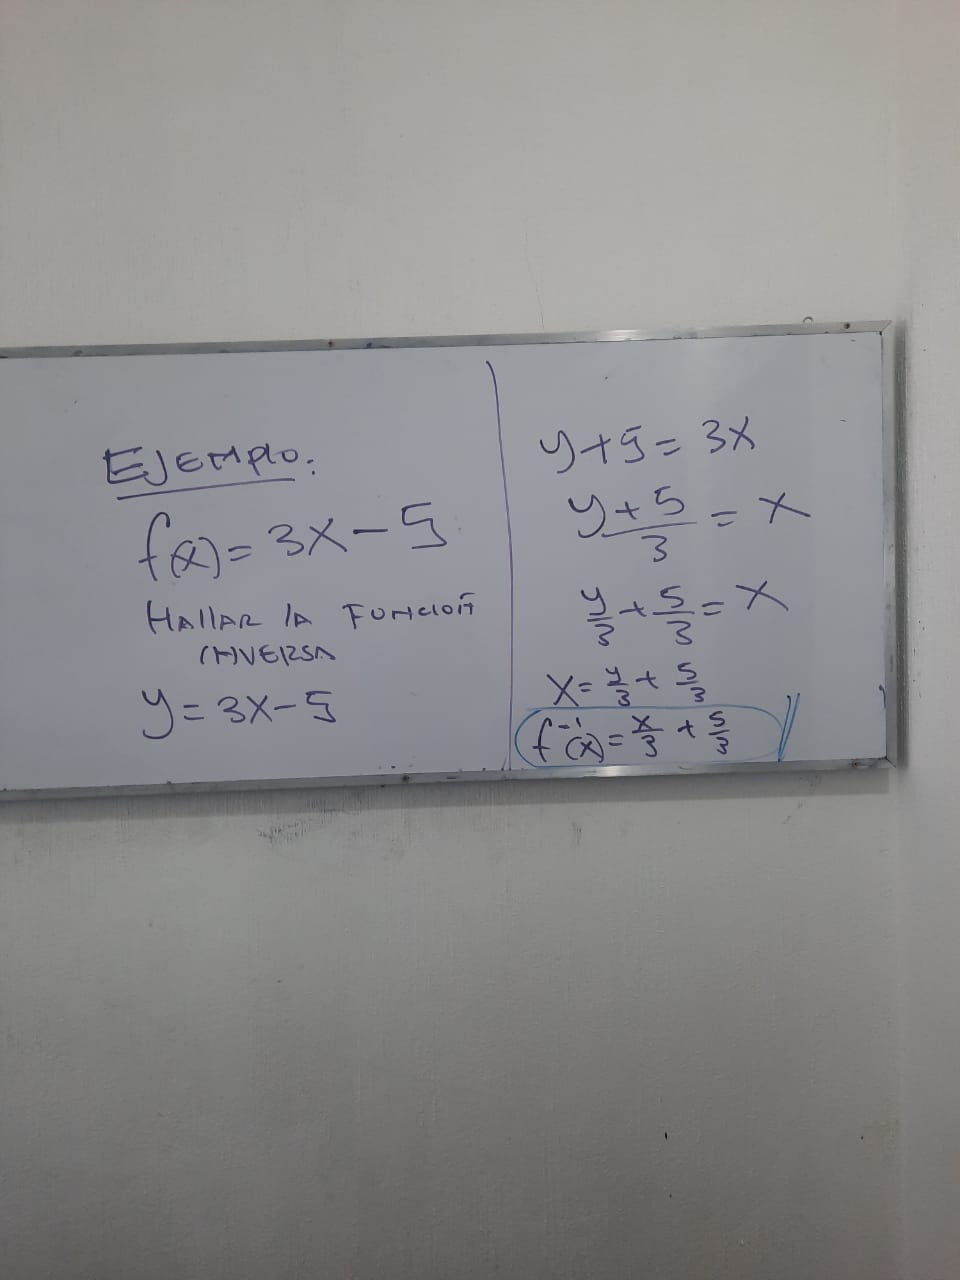 EJEMPLO:
f(x) = 3x - 5
HALLAR LA FUNCIÓN
INVERSA
y = 3x - 5
y + 5 = 3x
y + 5 / 3 = x
y/3 + 5/3 = x
x = y/3 + 5/3
f⁻¹(x) = x/3 + 5/3